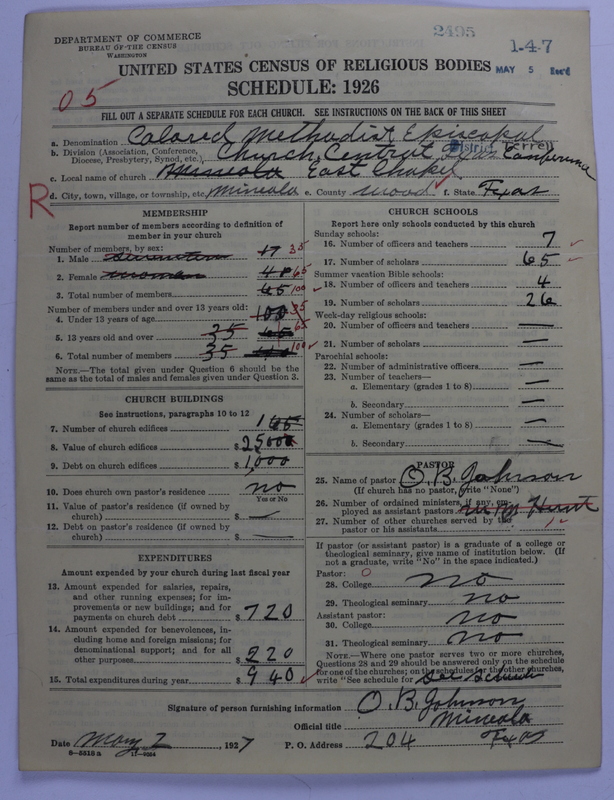 2495
DEPARTMENT OF COMMERCE
BUREAU OF THE CENSUS
WASHINGTON
1-4-7
UNITED STATES CENSUS OF RELIGIOUS BODIES
MAY 5 Rec'd
SCHEDULE: 1926
05
FILL OUT A SEPARATE SCHEDULE FOR EACH CHURCH. SEE INSTRUCTIONS ON THE BACK OF THIS SHEET
a. Denomination Colored Methodist Episcopal
b. Division (Association, Conference, Diocese, Presbytery, Synod, etc.) Church, Central Texas Conference
District Terrell
c. Local name of church Mineola East Chapel
R
d. City, town, village, or township, etc. Mineola e. County Wood f. State Texas
MEMBERSHIP
Report number of members according to definition of member in your church
Number of members, by sex:
1. Male 17 35
2. Female 48 65
3. Total number of members 65 100
Number of members under and over 13 years old:
4. Under 13 years of age 100 35
5. 13 years old and over 35 65
6. Total number of members 35 100
NOTE.—The total given under Question 6 should be the same as the total of males and females given under Question 3.
CHURCH BUILDINGS
See instructions, paragraphs 10 to 12
7. Number of church edifices 1
8. Value of church edifices $ 25000
9. Debt on church edifices $ 1,000
10. Does church own pastor's residence no
Yes or No
11. Value of pastor's residence (if owned by church) $ —
12. Debt on pastor's residence (if owned by church) $ —
EXPENDITURES
Amount expended by your church during last fiscal year
13. Amount expended for salaries, repairs, and other running expenses; for improvements or new buildings; and for payments on church debt $ 720
14. Amount expended for benevolences, including home and foreign missions; for denominational support; and for all other purposes $ 220
15. Total expenditures during year $ 940
CHURCH SCHOOLS
Report here only schools conducted by this church
Sunday schools:
16. Number of officers and teachers 7
17. Number of scholars 65
Summer vacation Bible schools:
18. Number of officers and teachers 4
19. Number of scholars 26
Week-day religious schools:
20. Number of officers and teachers —
21. Number of scholars —
Parochial schools:
22. Number of administrative officers —
23. Number of teachers—
a. Elementary (grades 1 to 8) —
b. Secondary —
24. Number of scholars—
a. Elementary (grades 1 to 8) —
b. Secondary —
PASTOR
25. Name of pastor O. B. Johnson
(If church has no pastor, write "None")
26. Number of ordained ministers, if any, employed as assistant pastors Hunt
27. Number of other churches served by the pastor or his assistants
If pastor (or assistant pastor) is a graduate of a college or theological seminary, give name of institution below. (If not a graduate, write "No" in the space indicated.)
Pastor: 0
28. College no
29. Theological seminary no
Assistant pastor:
30. College no
31. Theological seminary no
NOTE.—Where one pastor serves two or more churches, Questions 28 and 29 should be answered only on the schedule for one of the churches; on the schedules for the other churches, write "See schedule for
Signature of person furnishing information O. B. Johnson
Official title Mineola
Date May 2, 1927 P. O. Address 204 Texas
8—5518 a 11—9064